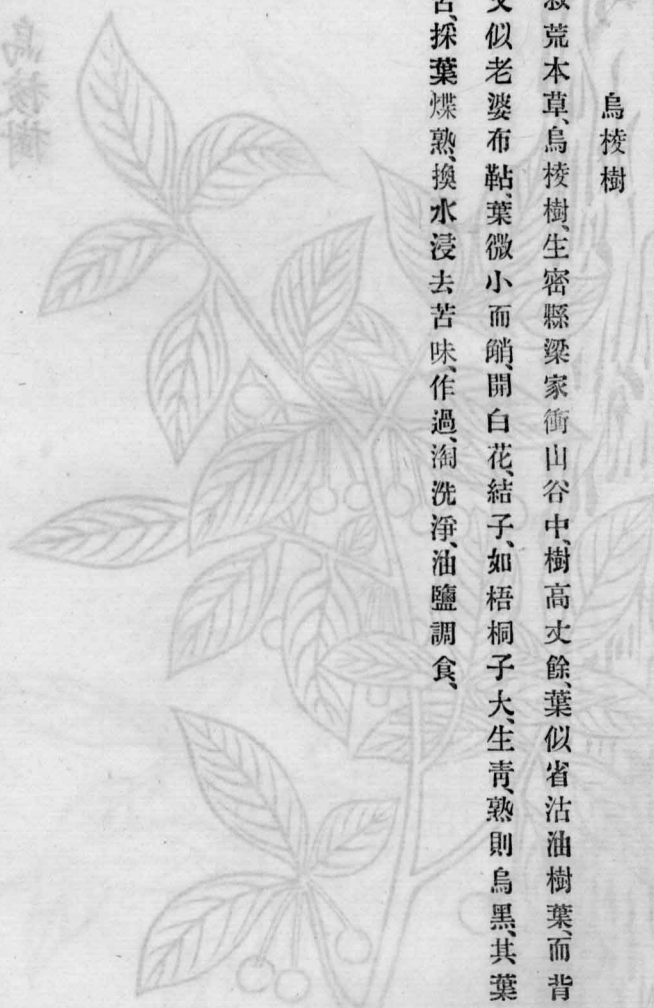 烏棱樹
荒本草、烏棱樹、生密縣梁家衝山谷中、樹高丈餘、葉似省沽油樹葉、而背
似老婆布鞊、葉微小而䚙、開白花、結子、如梧桐子大、生靑、熟則烏黑、其葉
苦、採葉煠熟、換水浸去苦味、作過、淘洗淨、油鹽調食、